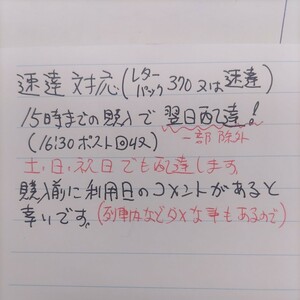 速達対応(レターパック370又は速達)
15時までの購入で翌日配達!
(16:30ポスト回収) 一部除外
土・日・祝日でも配達します
購入前に利用日のコメントがあると
幸いです。(列車内などダメな事もあるので)